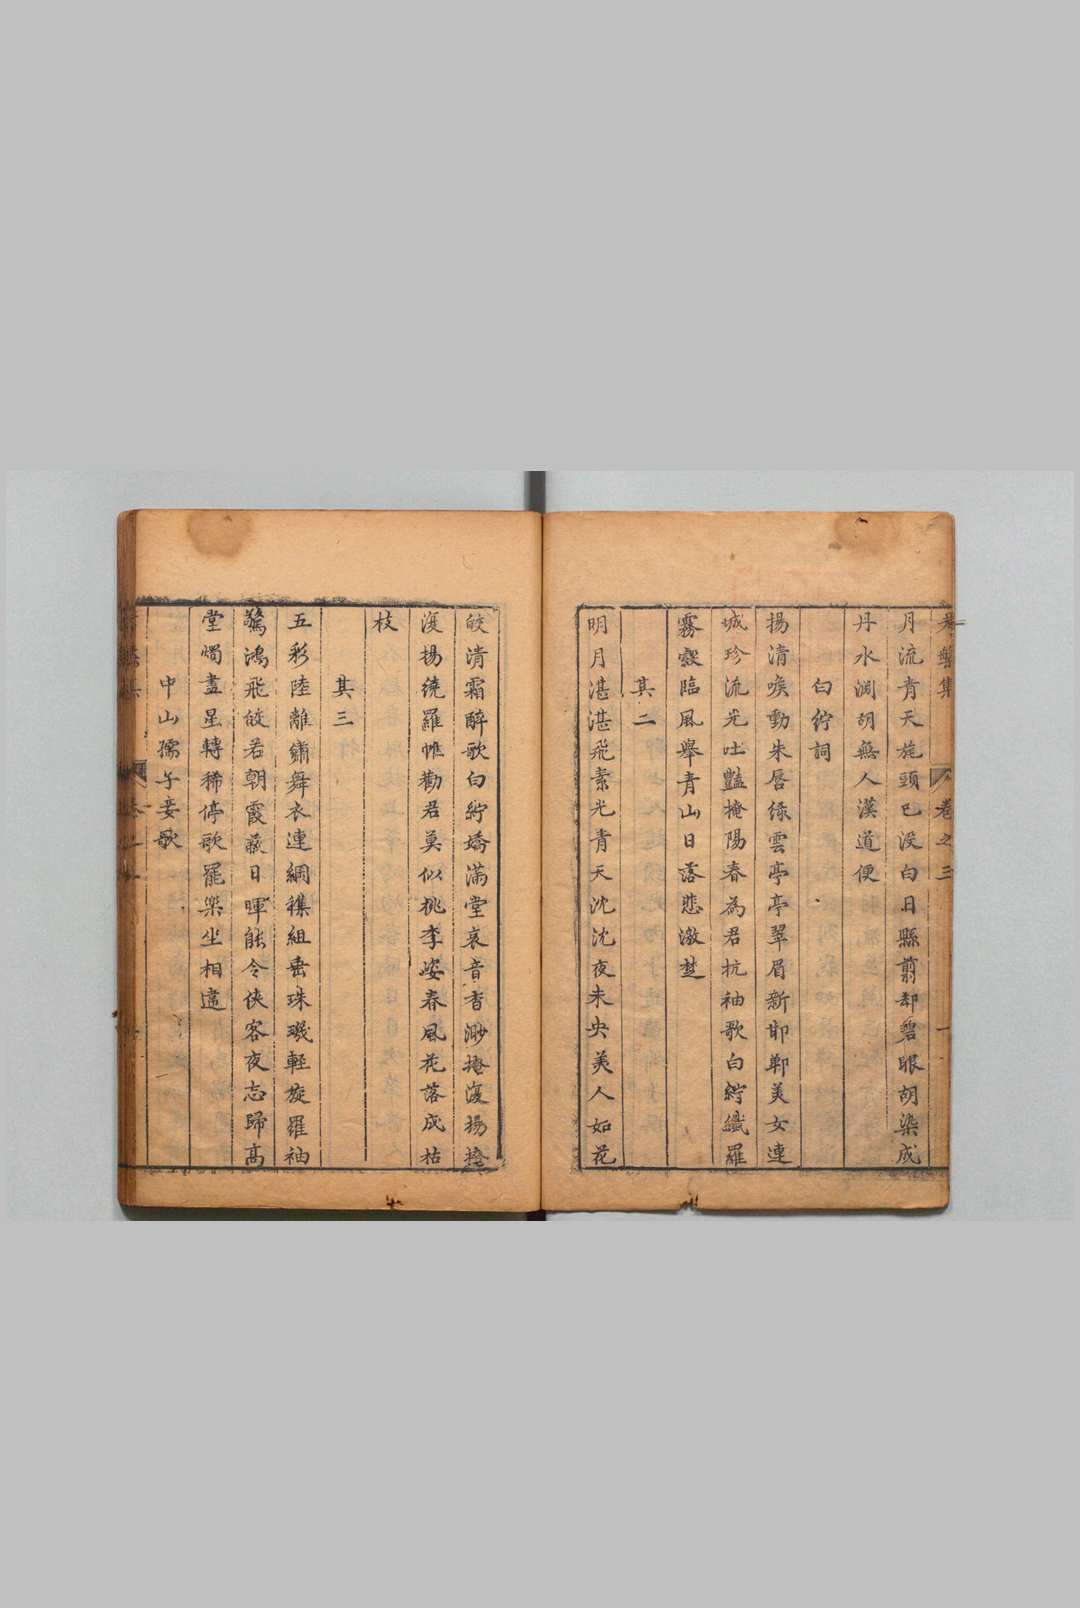 月流青天旄頭已沒白日縣翦却碧眼胡染成
丹水澗胡無人漢道便
白紵詞
揚清喉動朱唇綠雲亭亭翠眉新邯鄲美女連
城珍流光吐豔掩陽春為君抗袖歌白紵纖羅
霧縠臨風舉青山日落悲激楚
其二
明月湛湛飛素光青天沈沈夜未央美人如花
皎清霜醉歌白紵嬌滿堂哀音杳渺掩復揚掩
復揚繞羅帷勸君莫似桃李姿春風花落成枯
枝
其三
五彩陸離繡舞衣連綢穕組垂珠璣輕旋羅袖
驚鴻飛皎若朝霞蔽日暉能令俠客夜忘歸高
堂燭盡星轉稀停歌罷樂坐相違
中山孺子妾歌
卷之三